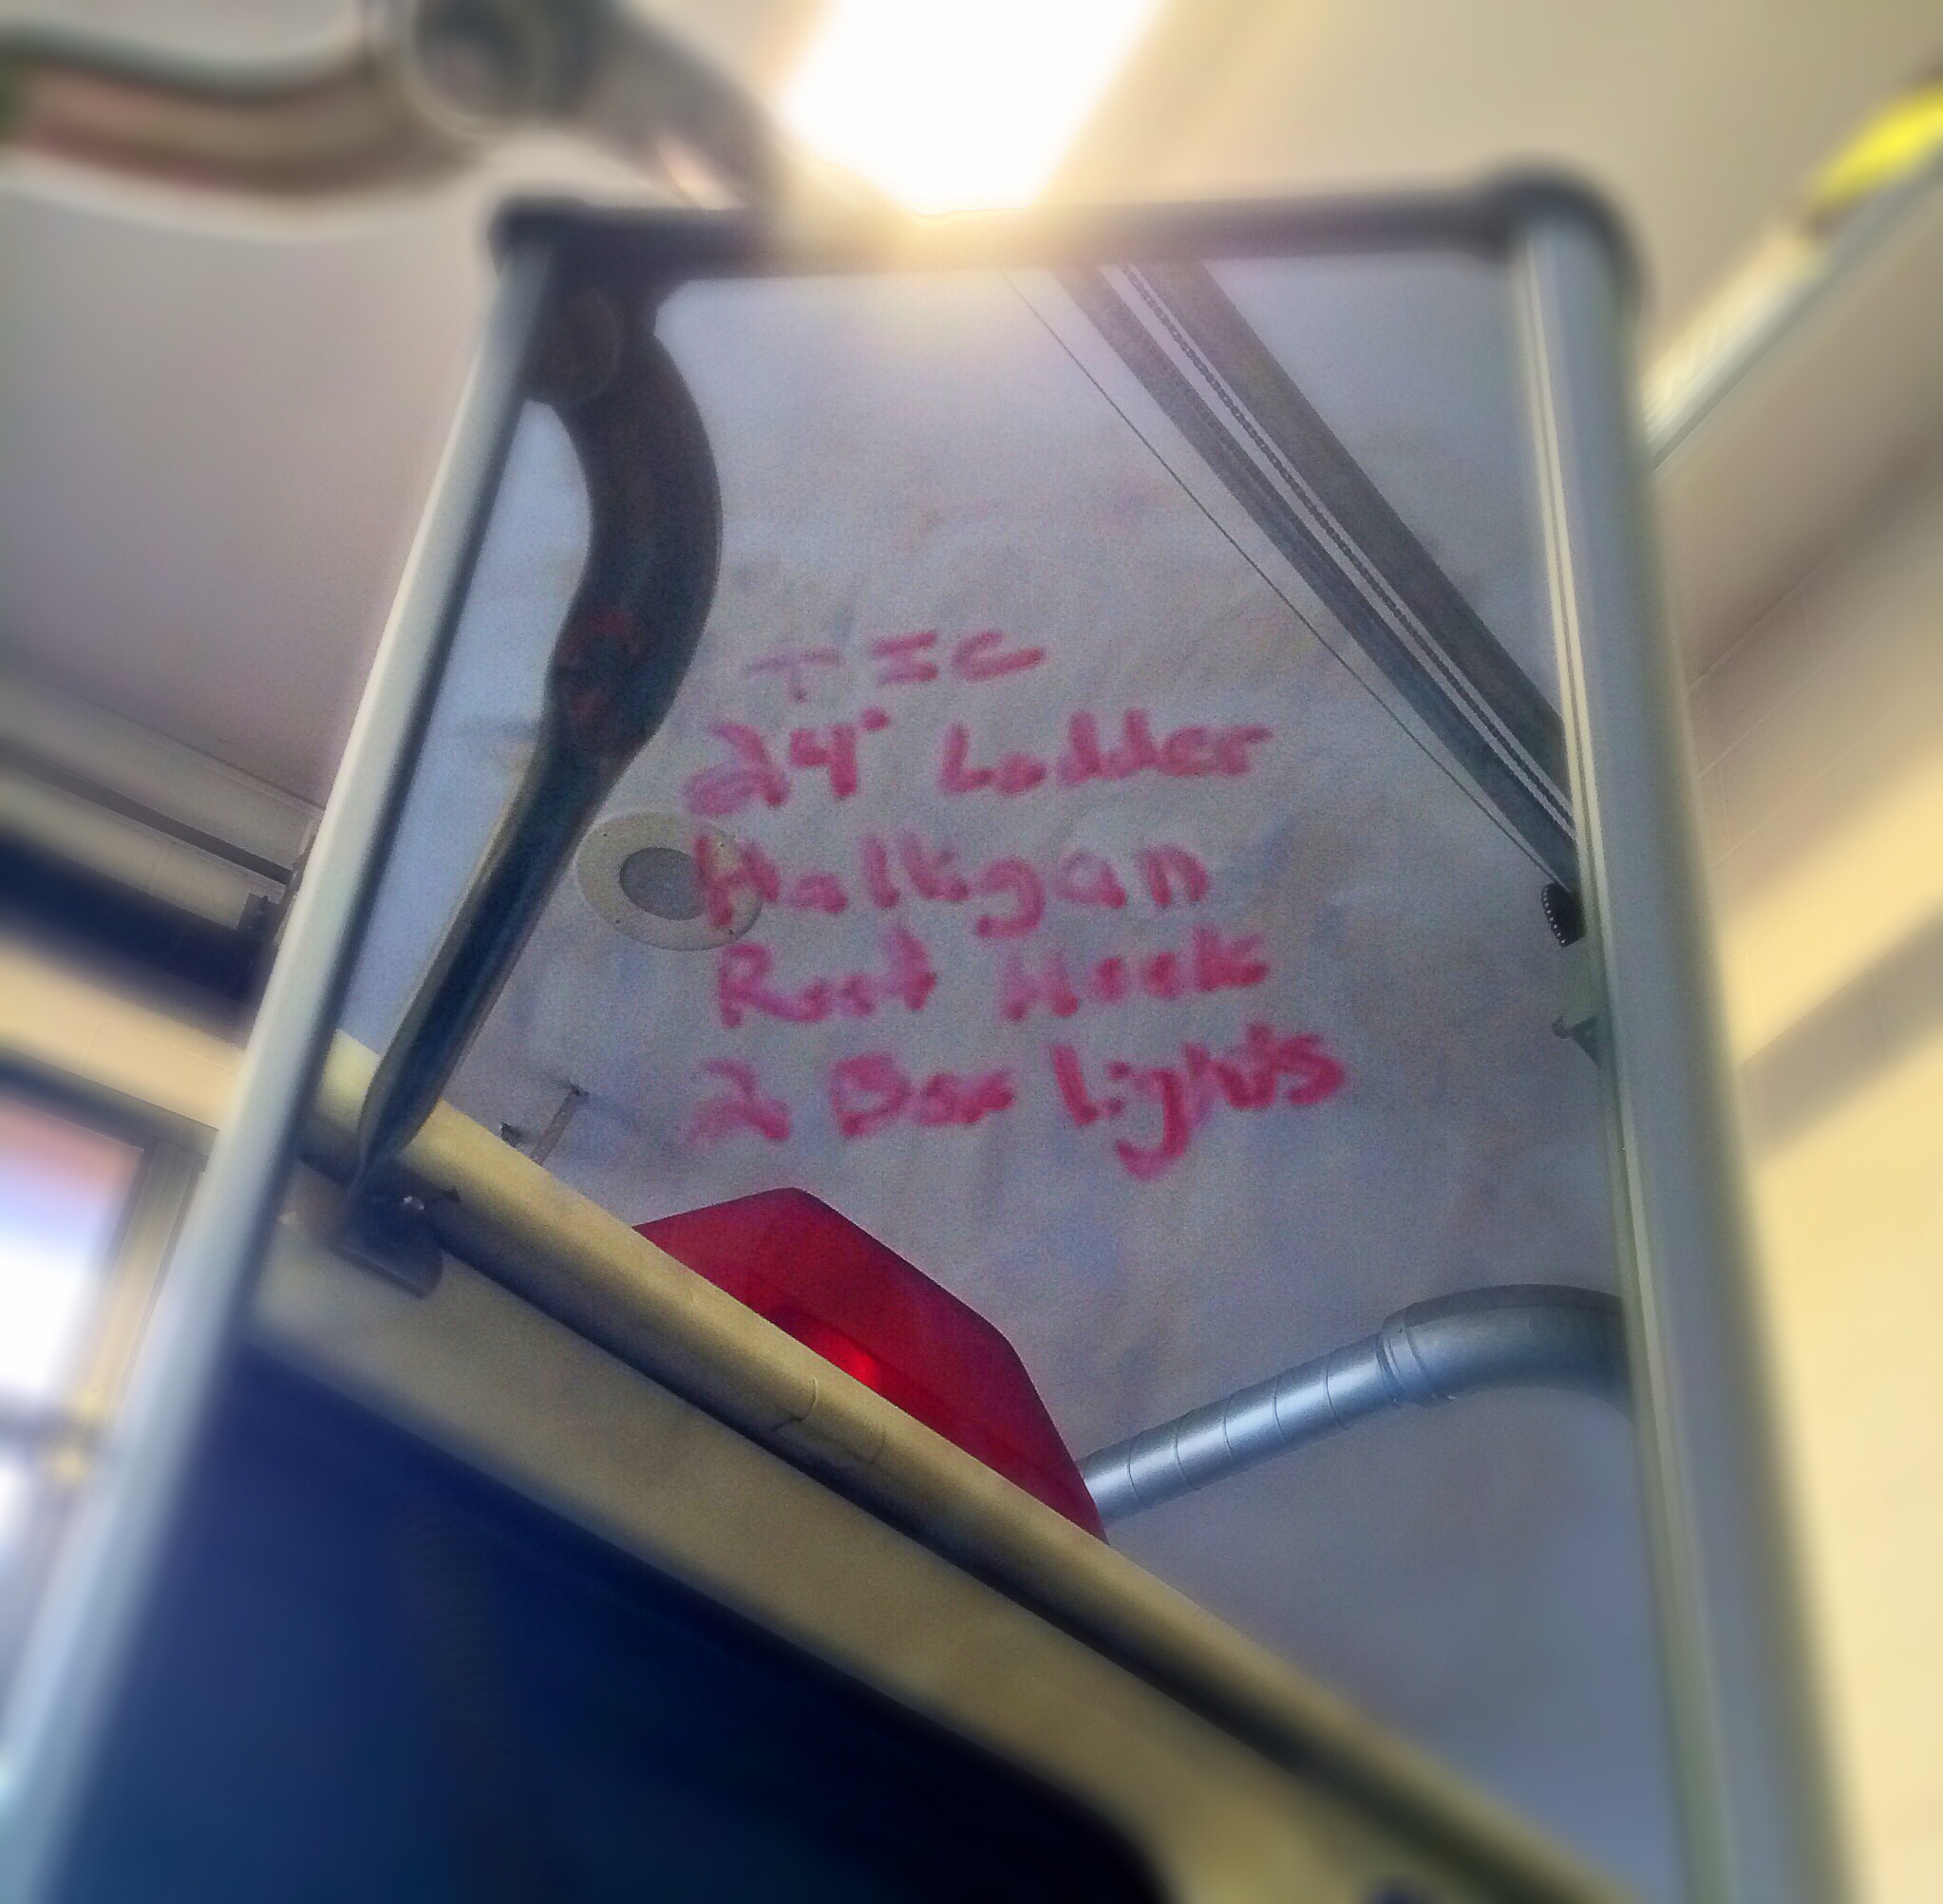 TIC
24' Ladder
Halligan
Roof Hook
2 Box lights